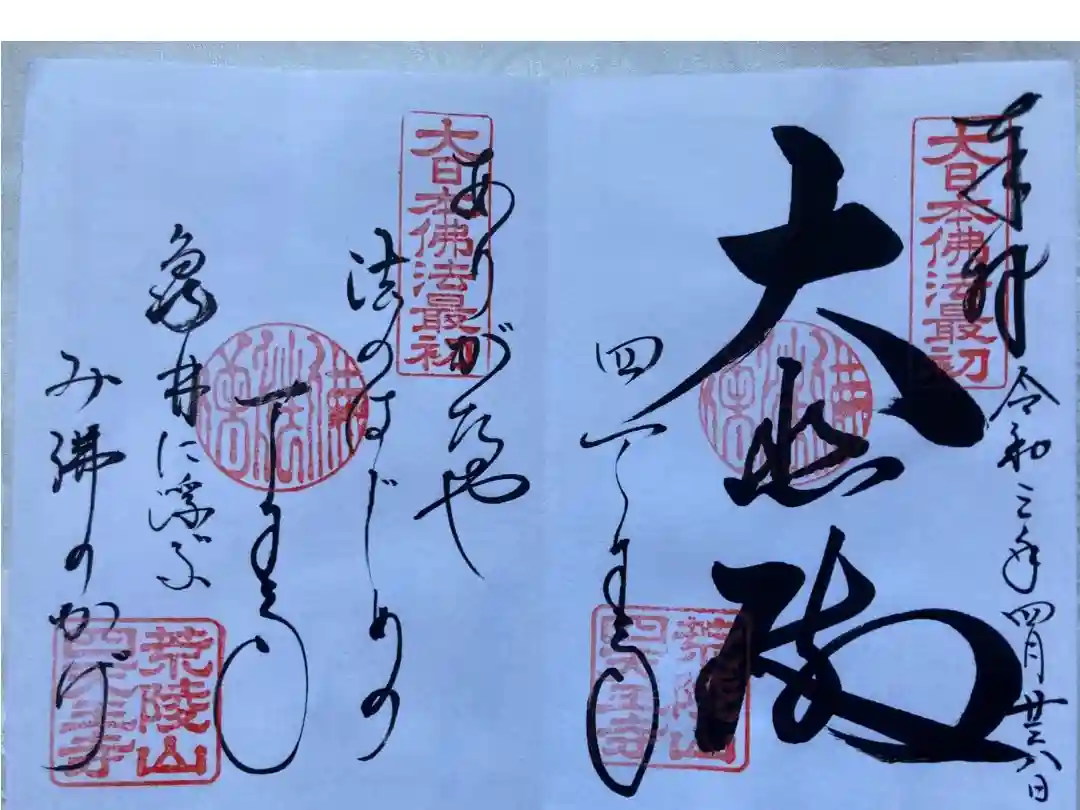 奉拝
令和三年四月廿六日
大日本佛法最初
大悲殿
四天王寺
荒陵山
四天王寺
大日本佛法最初
ありがたや
法のはじめの
天王寺
亀井に浮ぶ
み佛のかげ
荒陵山
四天王寺